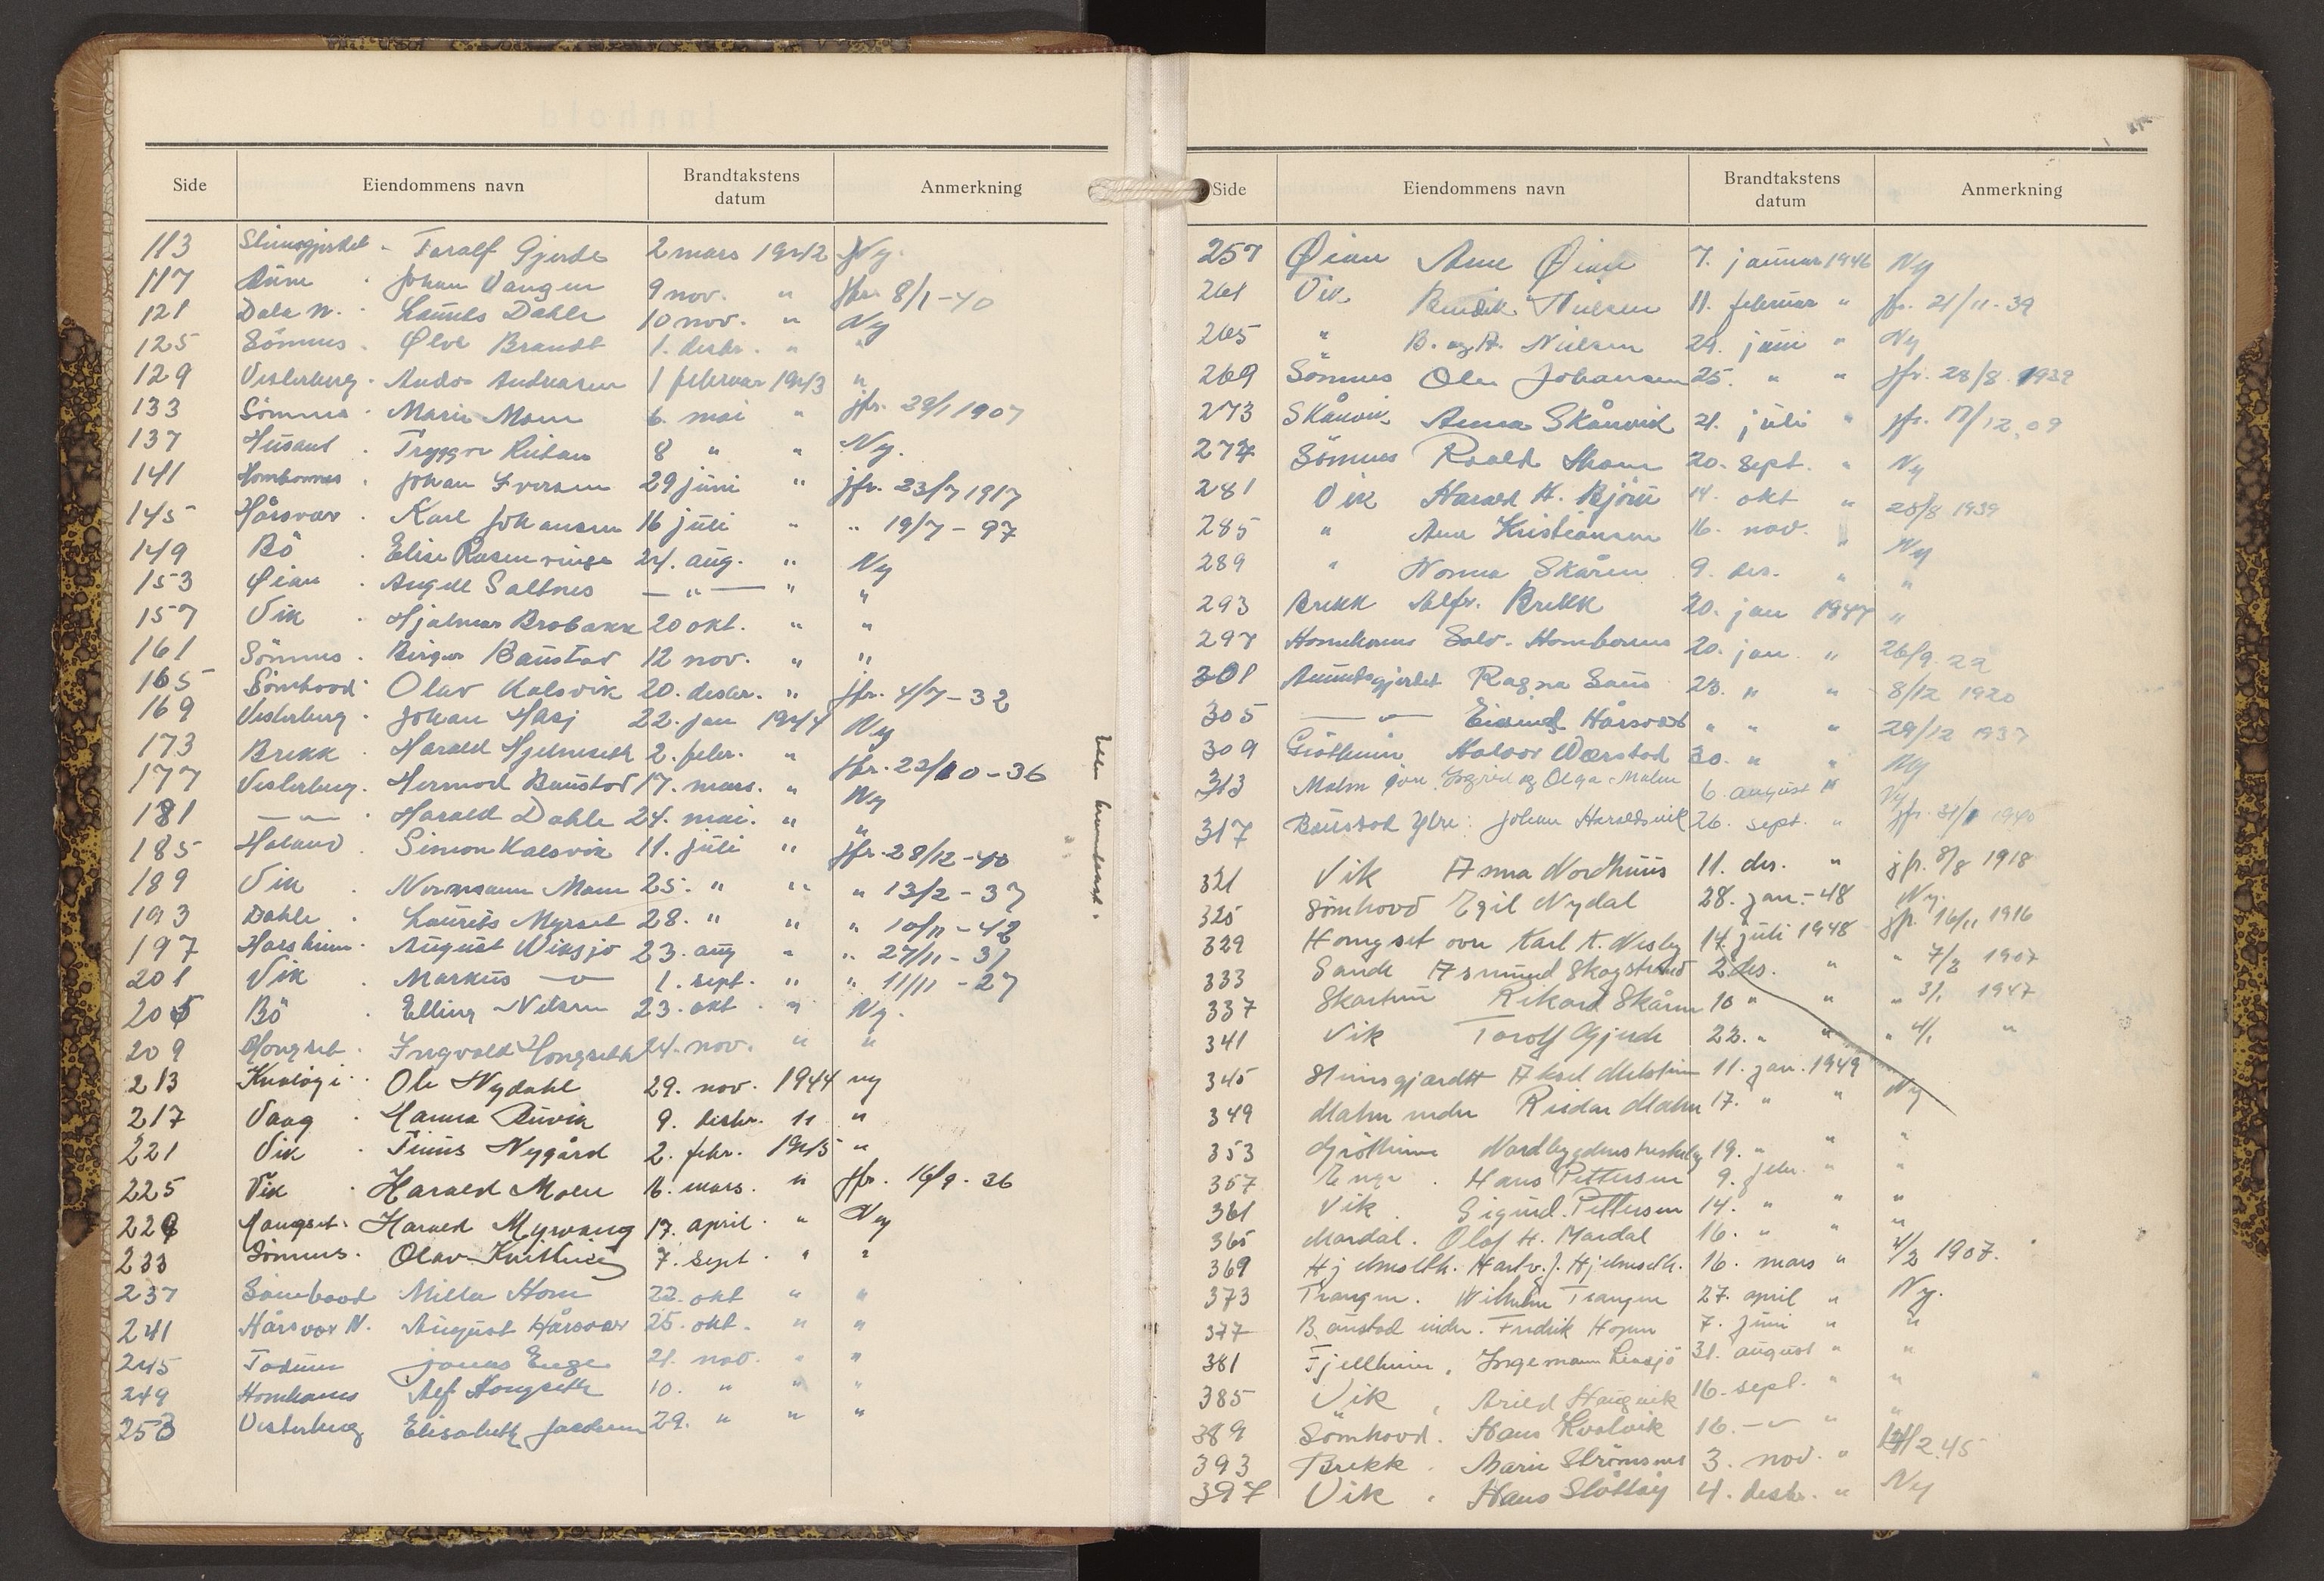 Side Eiendommens navn Brandtakstens datum Anmerkning
113 Stensgjerdet - Toralf Gjerde 2 mars 1942 Ny.
117 Johan Vangen 9 nov. " jfr. 8/1-40
121 Dale n. Laurits Dahle 10 nov. " Ny
125 Sömnes Ölve Brandt 1. desbr. " "
129 Vesterberg - Andor Andreasen 1 februar 1943 "
133 Sömnes - Marie Moen 6. mai " jfr. 29/1 1907
137 Trygve 8 " " Ny.
141 Hombornes . Johan Iversen 29 juni " jfr. 23/7 1917
145 Hårsvær . Karl Johansen 16 juli " " 19/7-97
149 Bö . Elise Rosenvinge 24. aug. " Ny
153 Øian . Angell Saltnes — " — " "
157 Vik . Hjalmar Brobakk 20 okt. " "
161 Sömnes . Birger Baustad 12 nov. " "
165 Sömhovd . Olav Kalsvik 20. desbr. " jfr. 4/7-32
169 Vesterberg . Johan 22. jan 1944 Ny
173 Brekk . Harald Hjelmseth 2. febr. " jfr. 22/10-36
177 Vesterberg . Hermod Baustad 17. mars. " Ny
181 — " — . Harald Dahle 24. mai. " "
185 Haland . Simon Kalsvik 11. juli " jfr. 28/12-40
189 Vik . Normann Moen 25. " " " 13/2-37
193 Dahle . Laurits Myrset 28. " " " 10/11-42
197 Harsheim . August Wiksjö 23. aug " " 27/11-31
201 Vik . Markus — " — 1. sept. " " 11/11-27
205 Bö . Elling Nilsen 23. okt. " Ny.
209 Hongset . Ingvald Hongseth 24. nov. " "
213 . Ole Nydahl 29. nov. 1944 ny
217 Vaag . Hanna 9. desbr. " "
221 Vik . Tinus Nygård 2. febr. 1945 "
225 Vik . Harald Moen 16. mars. " jfr. 16/9-36
229 Hongset . Harald Myrvang 17. april. " Ny
233 Sömnes . Olav 7. sept. " "
237 Sömhovd Milla Horn 22. okt " "
241 Hårsvær N. August Hårsvær 25. okt. " "
245 Jonas Enge 21. nov. " "
249 Hombornes Alf Hongseth 10. " " "
253 Vesterberg Elisabeth Jacobsen 29. " " "
Side Eiendommens navn Brandtakstens datum Anmerkning
257 Øian Arne Øian 7. januar 1946 Ny
261 Vik Bendik Nielsen 11. februar " jfr. 21/11-39
265 " B. og A. Nielsen 24. juni " Ny
269 Sömnes Ole Johansen 25. " " jfr. 28/8 1939
273 Skårvik Anna Skårvik 21. juli " jfr. 17/12.09
277 Sömnes Roald 20. sept. " Ny
281 Vik Harald H. Björu 14. okt " 28/8 1939
285 " Arne Kristiansen 16. nov. " Ny
289 " Norma Skåren 9. des. " "
293 Brekk Alfr. Brekk 20. jan 1947 "
297 Hombornes Solv. Hombornes 20. jan. " 26/9.22
301 Aunetsgjerdet Ragna Saus 23. " " 8/12 1920
305 — " — Eivind Hårsvær " " " 29/12 1937
309 Gröttheim Halvor Værstad 30. " " Ny
313 Malm övre Ingrid og Olga Malm 6. august " Ny
317 Baustad Ytre: Johan Haraldsvik 26. sept. " jfr. 31/1 1940
321 Vik Anna Nordhuus 11. des. " jfr. 8/8 1918
325 Sömhovd Egil Nydal 28. jan.-48 Ny.
329 Hongset övre Karl K. Visby 14. juli 1948 jfr. 16/11 1916
333 Sande Asmund Skogstrand 2 des. " " 7/2 1907
337 Rikard Skåren 10 " " " 3/1 1947
341 Vik Torolf Gjerde 22. " " " 4/1 "
345 Stensgjerdet Aksel 11. jan. 1949 Ny
349 Malm nedre Reidar Malm 17. " "
353 Gröttheim 19. " " "
357 Enge . Hans Pettersen 9. febr. " "
361 Vik . Sigurd Pettersen 14. " " "
365 Mardal. Olaf H. Mardal 16. " " "
369 Hjelmseth. Hartv. J. Hjelmseth. 16. mars " 4/2 1907.
373 Trangen . Wilhelm Trangen 27. april " Ny.
377 Baustad indre. Fredrik Hopen 7. juni " "
381 Fjellheim . Ingemann 31. august " "
385 Vik . Arild Haugvik 16. sept. " "
389 Sömhovd . Hans Kvalvik 16. — " — " "
393 Brekk . Marie Strömsnes 3. nov. "
397 Vik . Hans 4. desbr. " Ny